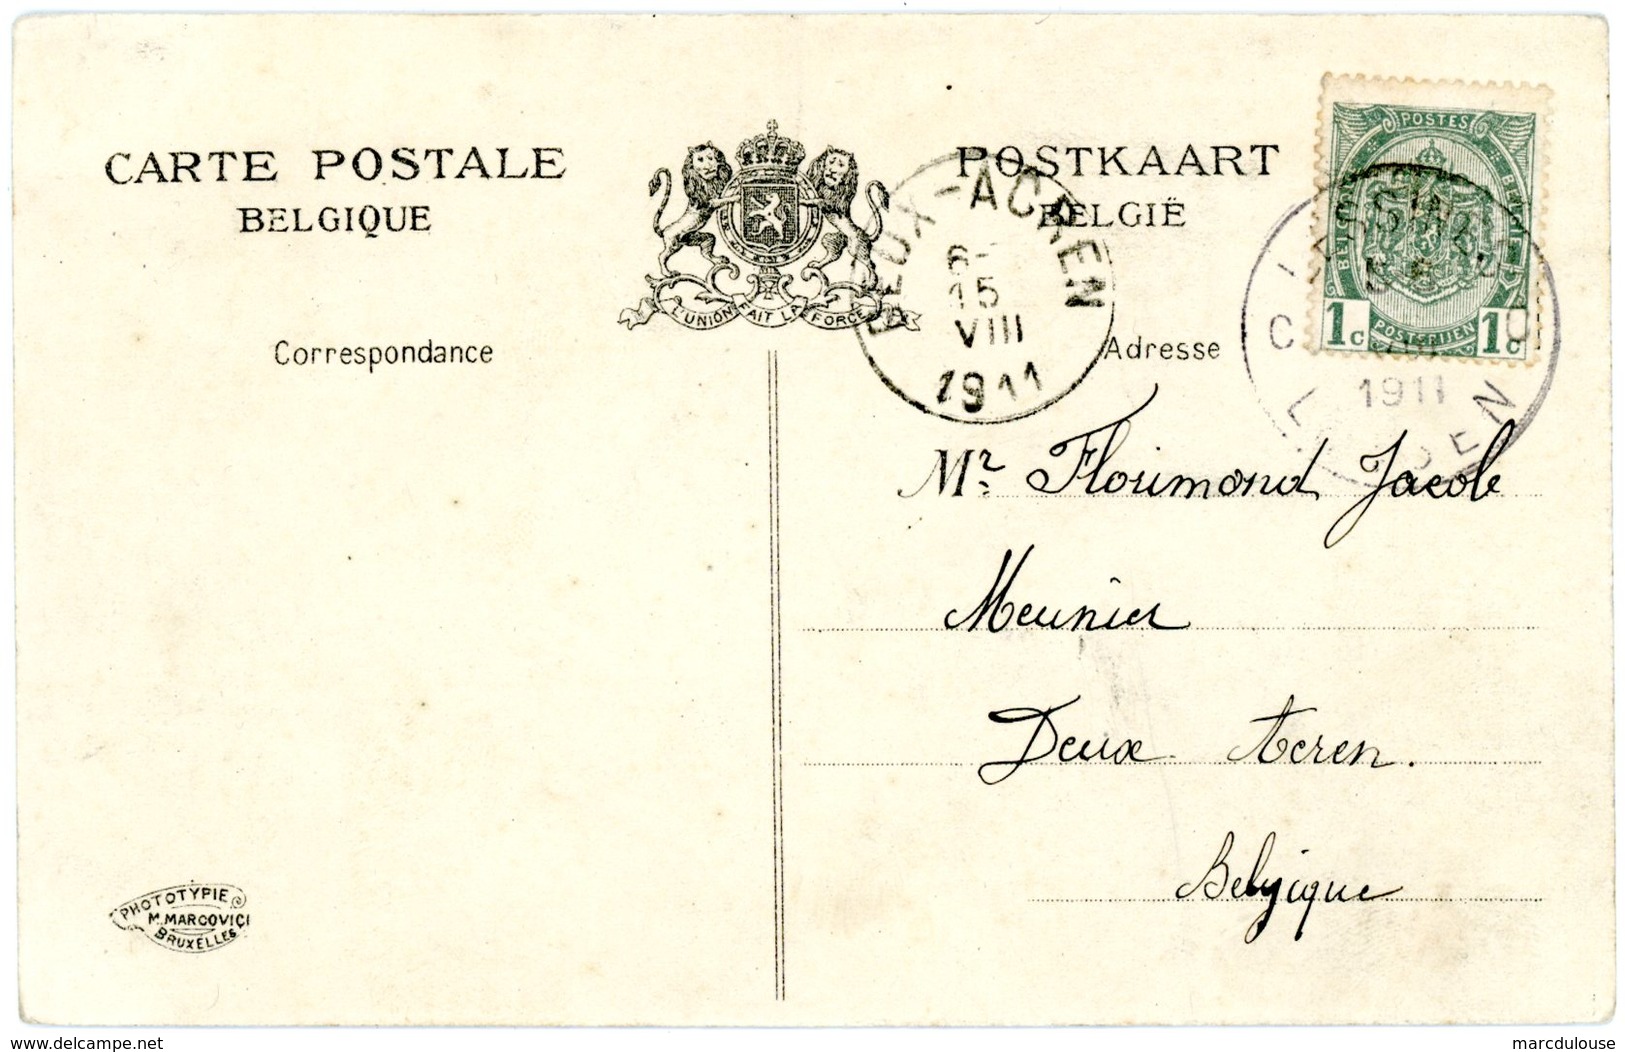 CARTE POSTALE
BELGIQUE
POSTKAART
BELGIË
L'UNION FAIT LA FORCE
DEUX-ACREN
15
VIII
1911
POSTES
BELGIQUE
BELGIË
1c POSTERIJEN 1c
1911
Correspondance
Adresse
Mr. Florimond Jacob
Meunier
Deux Acren.
Belgique
PHOTOTYPIE
M. MARCOVICI
BRUXELLES
www.delcampe.net
marcdulouse